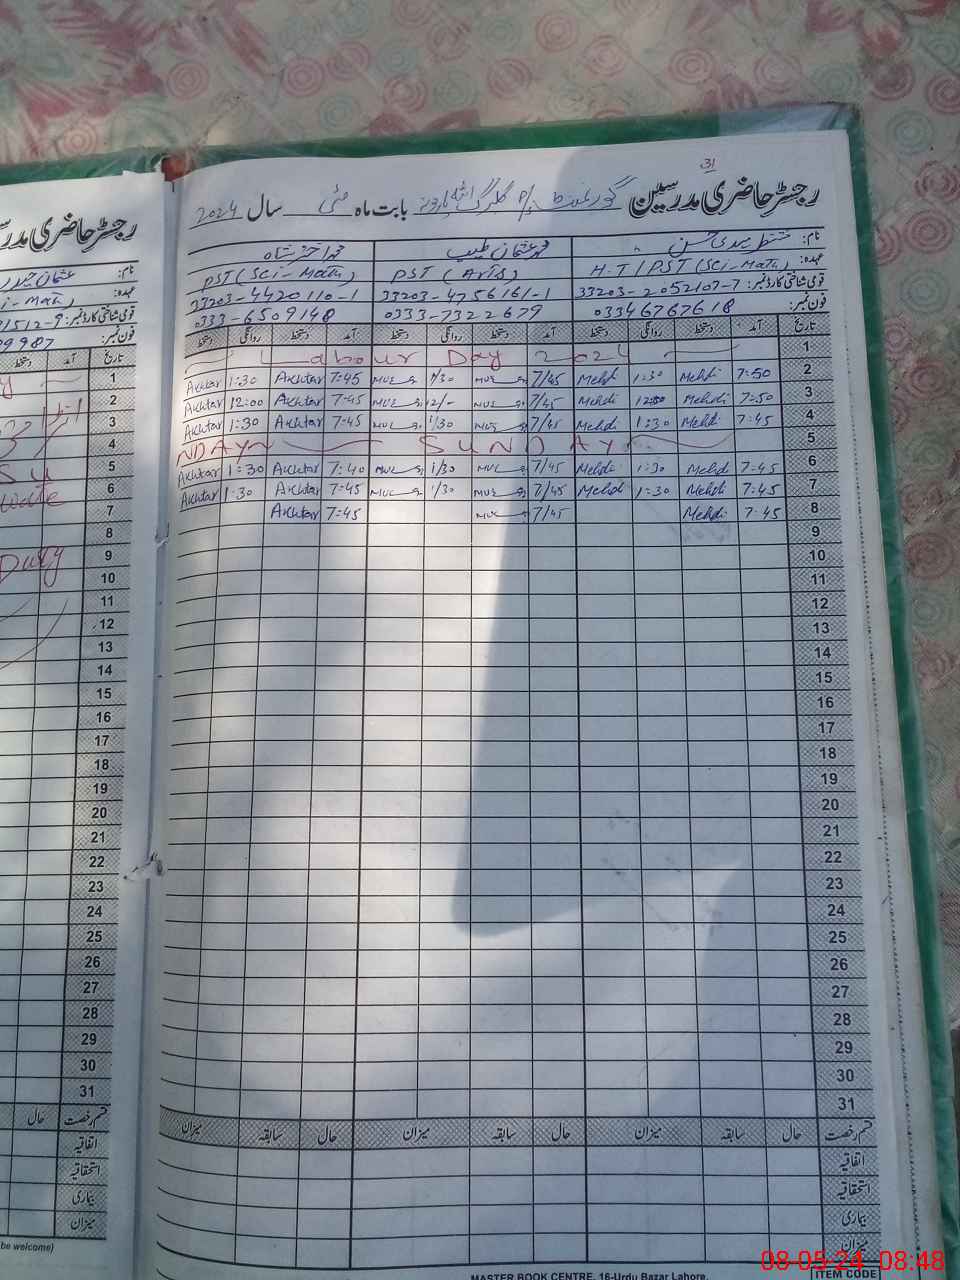 رجسٹر حاضری مدرسین گورنمنٹ P/S بابت ماہ مئی سال 2024
نام:
عہدہ: H.T / PST (Sci-Math) PST (Arts) PST (Sci-Math)
قومی شناختی کارڈ نمبر: 33203-2052107-7 33203-4756161-1 33203-4420110-1
فون نمبر: 03346767618 0333-7322679 0333-6509148
تاریخ آمد دستخط روانگی دستخط آمد دستخط روانگی دستخط آمد دستخط روانگی دستخط
1 Labour Day 2024
2 7:50 Mehdi 1:30 Mehdi 7/45 1/30 7:45 Akhtar 1:30 Akhtar
3 7:50 Mehdi 12:00 Mehdi 7/45 12/- 7:45 Akhtar 12:00 Akhtar
4 7:45 Mehdi 1:30 Mehdi 7/45 1/30 7:45 Akhtar 1:30 Akhtar
5 NDAY SUNDAY
6 7:45 Mehdi 1:30 Mehdi 7/45 1/30 7:40 Akhtar 1:30 Akhtar
7 7:45 Mehdi 1:30 Mehdi 7/45 1/30 7:45 Akhtar 1:30 Akhtar
8 7:45 Mehdi 7/45 7:45 Akhtar
9
10
11
12
13
14
15
16
17
18
19
20
21
22
23
24
25
26
27
28
29
30
31
قسم رخصت حال سابقہ میزان حال سابقہ میزان حال سابقہ میزان
اتفاقیہ
استحقاقیہ
بیماری
میزان
MASTER BOOK CENTRE, 16-Urdu Bazar Lahore.
ITEM CODE
رجسٹر حاضری
نام: عثمان حیدر
عہدہ: i-Math)
قومی شناختی کارڈ نمبر: 1512-9
فون نمبر: 09987
تاریخ آمد دستخط
1
2
3
4
5
6
7
8
9 Duty
10
11
12
13
14
15
16
17
18
19
20
21
22
23
24
25
26
27
28
29
30
31
قسم رخصت حال
اتفاقیہ
استحقاقیہ
بیماری
میزان
be welcome)
08-05-24 08:48